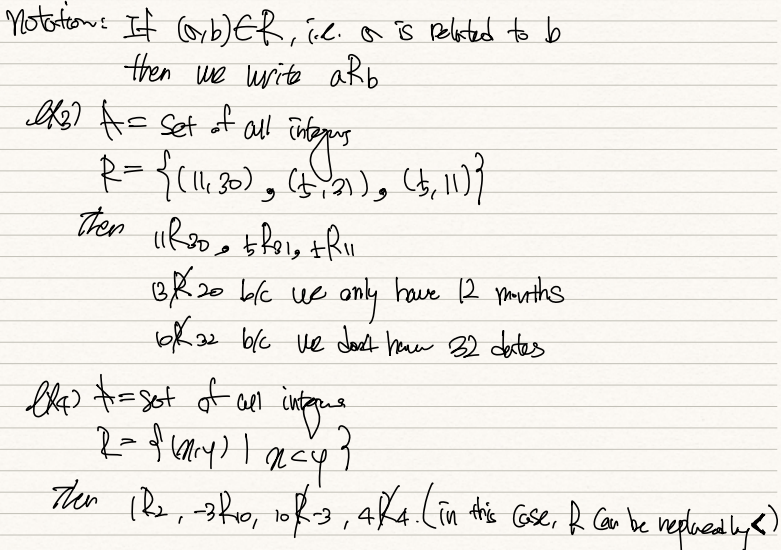 Notation: If (a,b)∈R, i.e. a is related to b
then we write aRb
ex3) A = set of all integers
R = {(11,30), (5,31), (5,11)}
Then 11R30, 5R31, 5R11
13R̸20 b/c we only have 12 months
10R̸32 b/c we don't have 32 dates
ex4) A = set of all integers
R = {(x,y) | x<y}
Then 1R2, -3R10, 10R̸-3, 4R̸4. (in this case, R can be replaced by <)